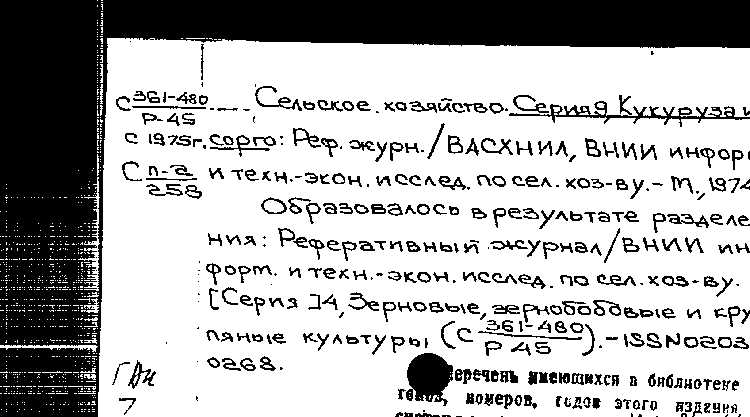 С 361-480 / Р-45 Сельское хозяйство. Серия 9, Кукуруза и
с 1975г. сорго: Реф. журн. / ВАСХНИЛ, ВНИИ инфор
С п-а / 258 и техн.-экон. исслед. по сел. хоз-ву. - М., 1974
Образовалось в результате разделе
ния: Реферативный журнал / ВНИИ ин
форм. и техн.-экон. исслед. по сел. хоз-ву.
[Серия ]4, Зерновые, зернобобовые и кру
пяные культуры (С 361-480 / Р-45). - ISSN0203
0268.
Перечень имеющихся в библиотеке
томов, номеров, годов этого издания